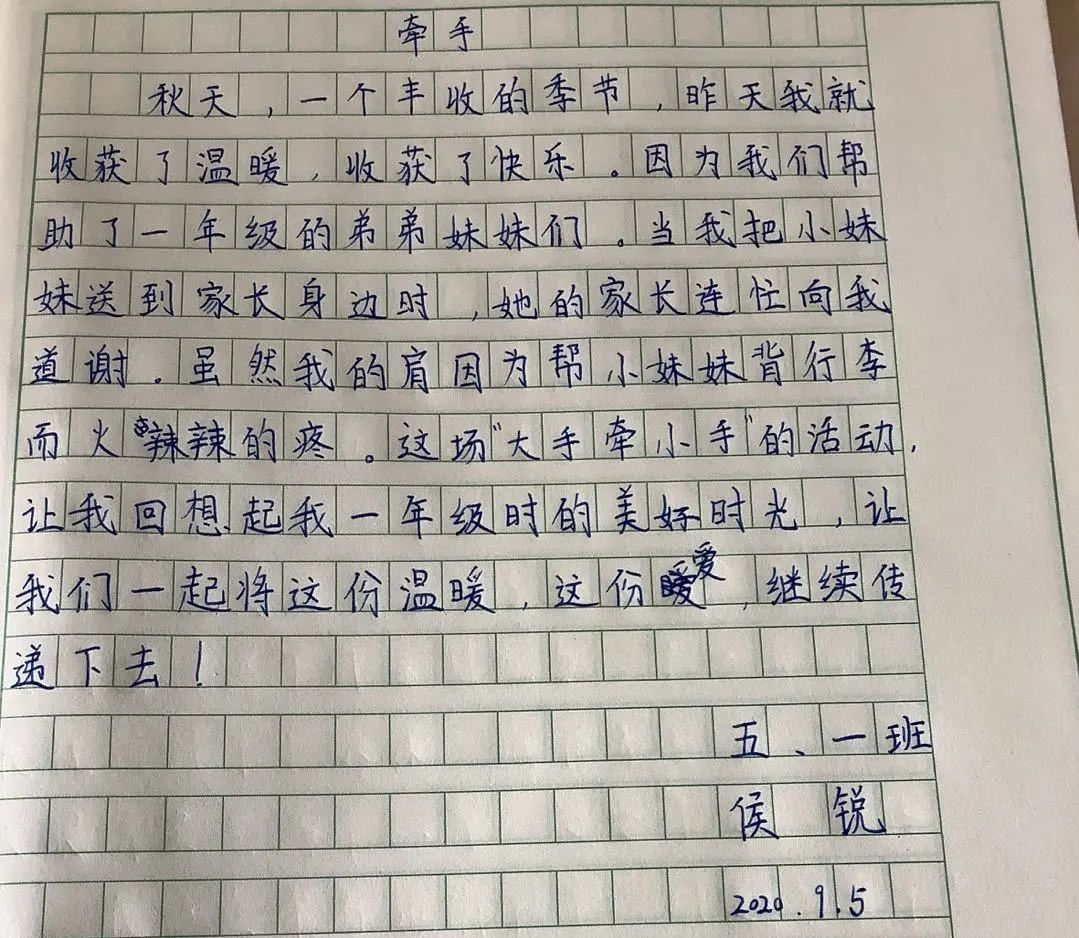 牵手
秋天，一个丰收的季节，昨天我就
收获了温暖，收获了快乐。因为我们帮
助了一年级的弟弟妹妹们。当我把小妹
妹送到家长身边时，她的家长连忙向我
道谢。虽然我的肩因为帮小妹妹背行李
而火辣辣的疼。这场“大手牵小手”的活动，
让我回想起我一年级时的美好时光，让
我们一起将这份温暖，这份爱，继续传
递下去！
五、一班
侯锐
2020.9.5